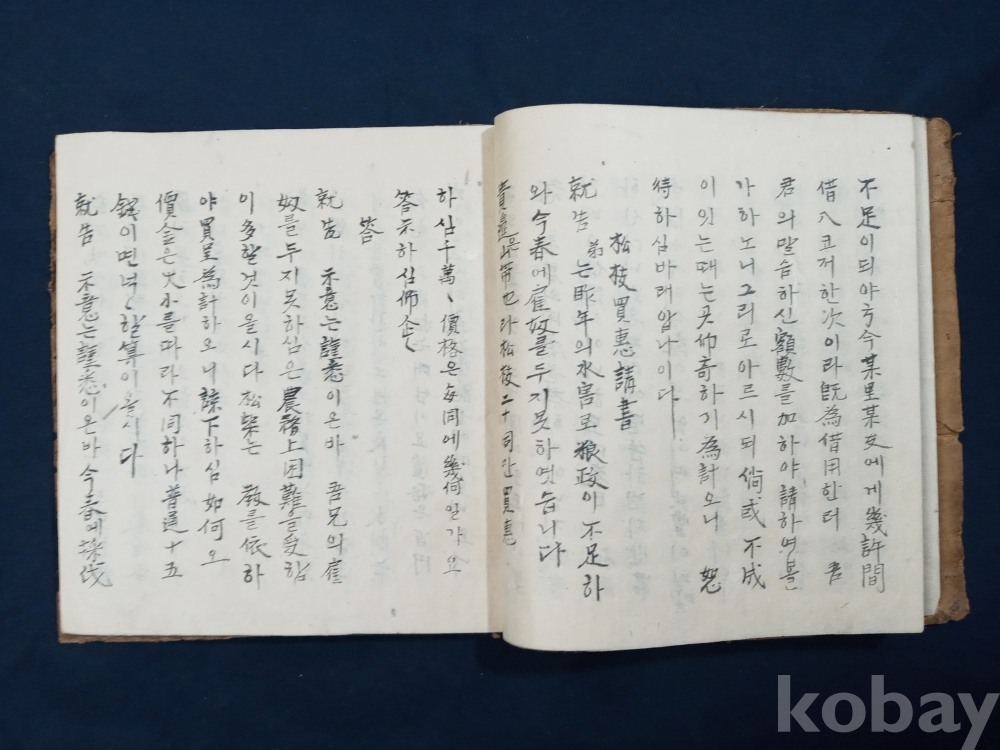 不足이되야 今今某里某友에게幾許間
借入코저한次이라旣為借用한터 君
君의말슴하신額數를加하야請하여볼
가하노니그리로아르시되倘或不成
이잇는때는곳仰奇하기為計오니 恕
待하심바래압나이다
松枝買惠請書
就告 弟는昨年의水害로粮政이不足하
와今春에雇奴를두지못하엿슴니다
松枝二十同만買惠
하심千萬〻價格은每同에幾何일가요
答示하심仰企
答
就告 示意는謹悉이온바 吾兄의雇
奴를두지못하심은農務上困難을受함
이多할것이올시다松柴는 敎를依하
야買呈為計하오니諒下하심如何오
價金은大小를따라不同하나普通十五
錢이면넉〻할算이올시다
就告 示意는謹悉이온바今春에採伐
kobay